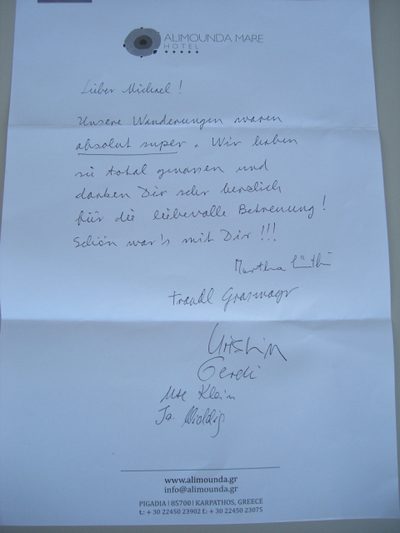 ALIMOUNDA MARE
HOTEL
Lieber Michael!
Unsere Wanderungen waren
absolut super. Wir haben
sie total genossen und
danken Dir sehr herzlich
für die liebevolle Betreuung!
Schön war's mit Dir!!!
Martha
Traudl
Gerdi
Ute Klein
www.alimounda.gr
info@alimounda.gr
PIGADIA | 85700 | KARPATHOS, GREECE
t.: +30 22450 23902 f.: +30 22450 23075